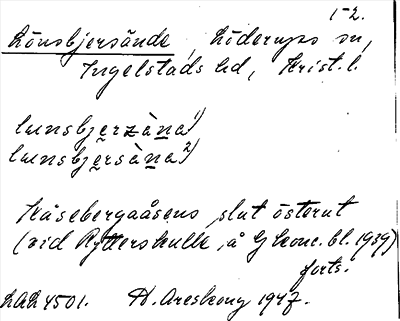 1-2.
Lönsbjersände, Löderups sn,
Ingelstads hd, Krist. l.
lunsbjerzàna 1)
lunsbjersàna 2)
Kåsebergaåsens slut österut
(vid Ryttershulle å G kone. bl. 1939)
forts.
LAL 4501. H. Areskoug 1947.